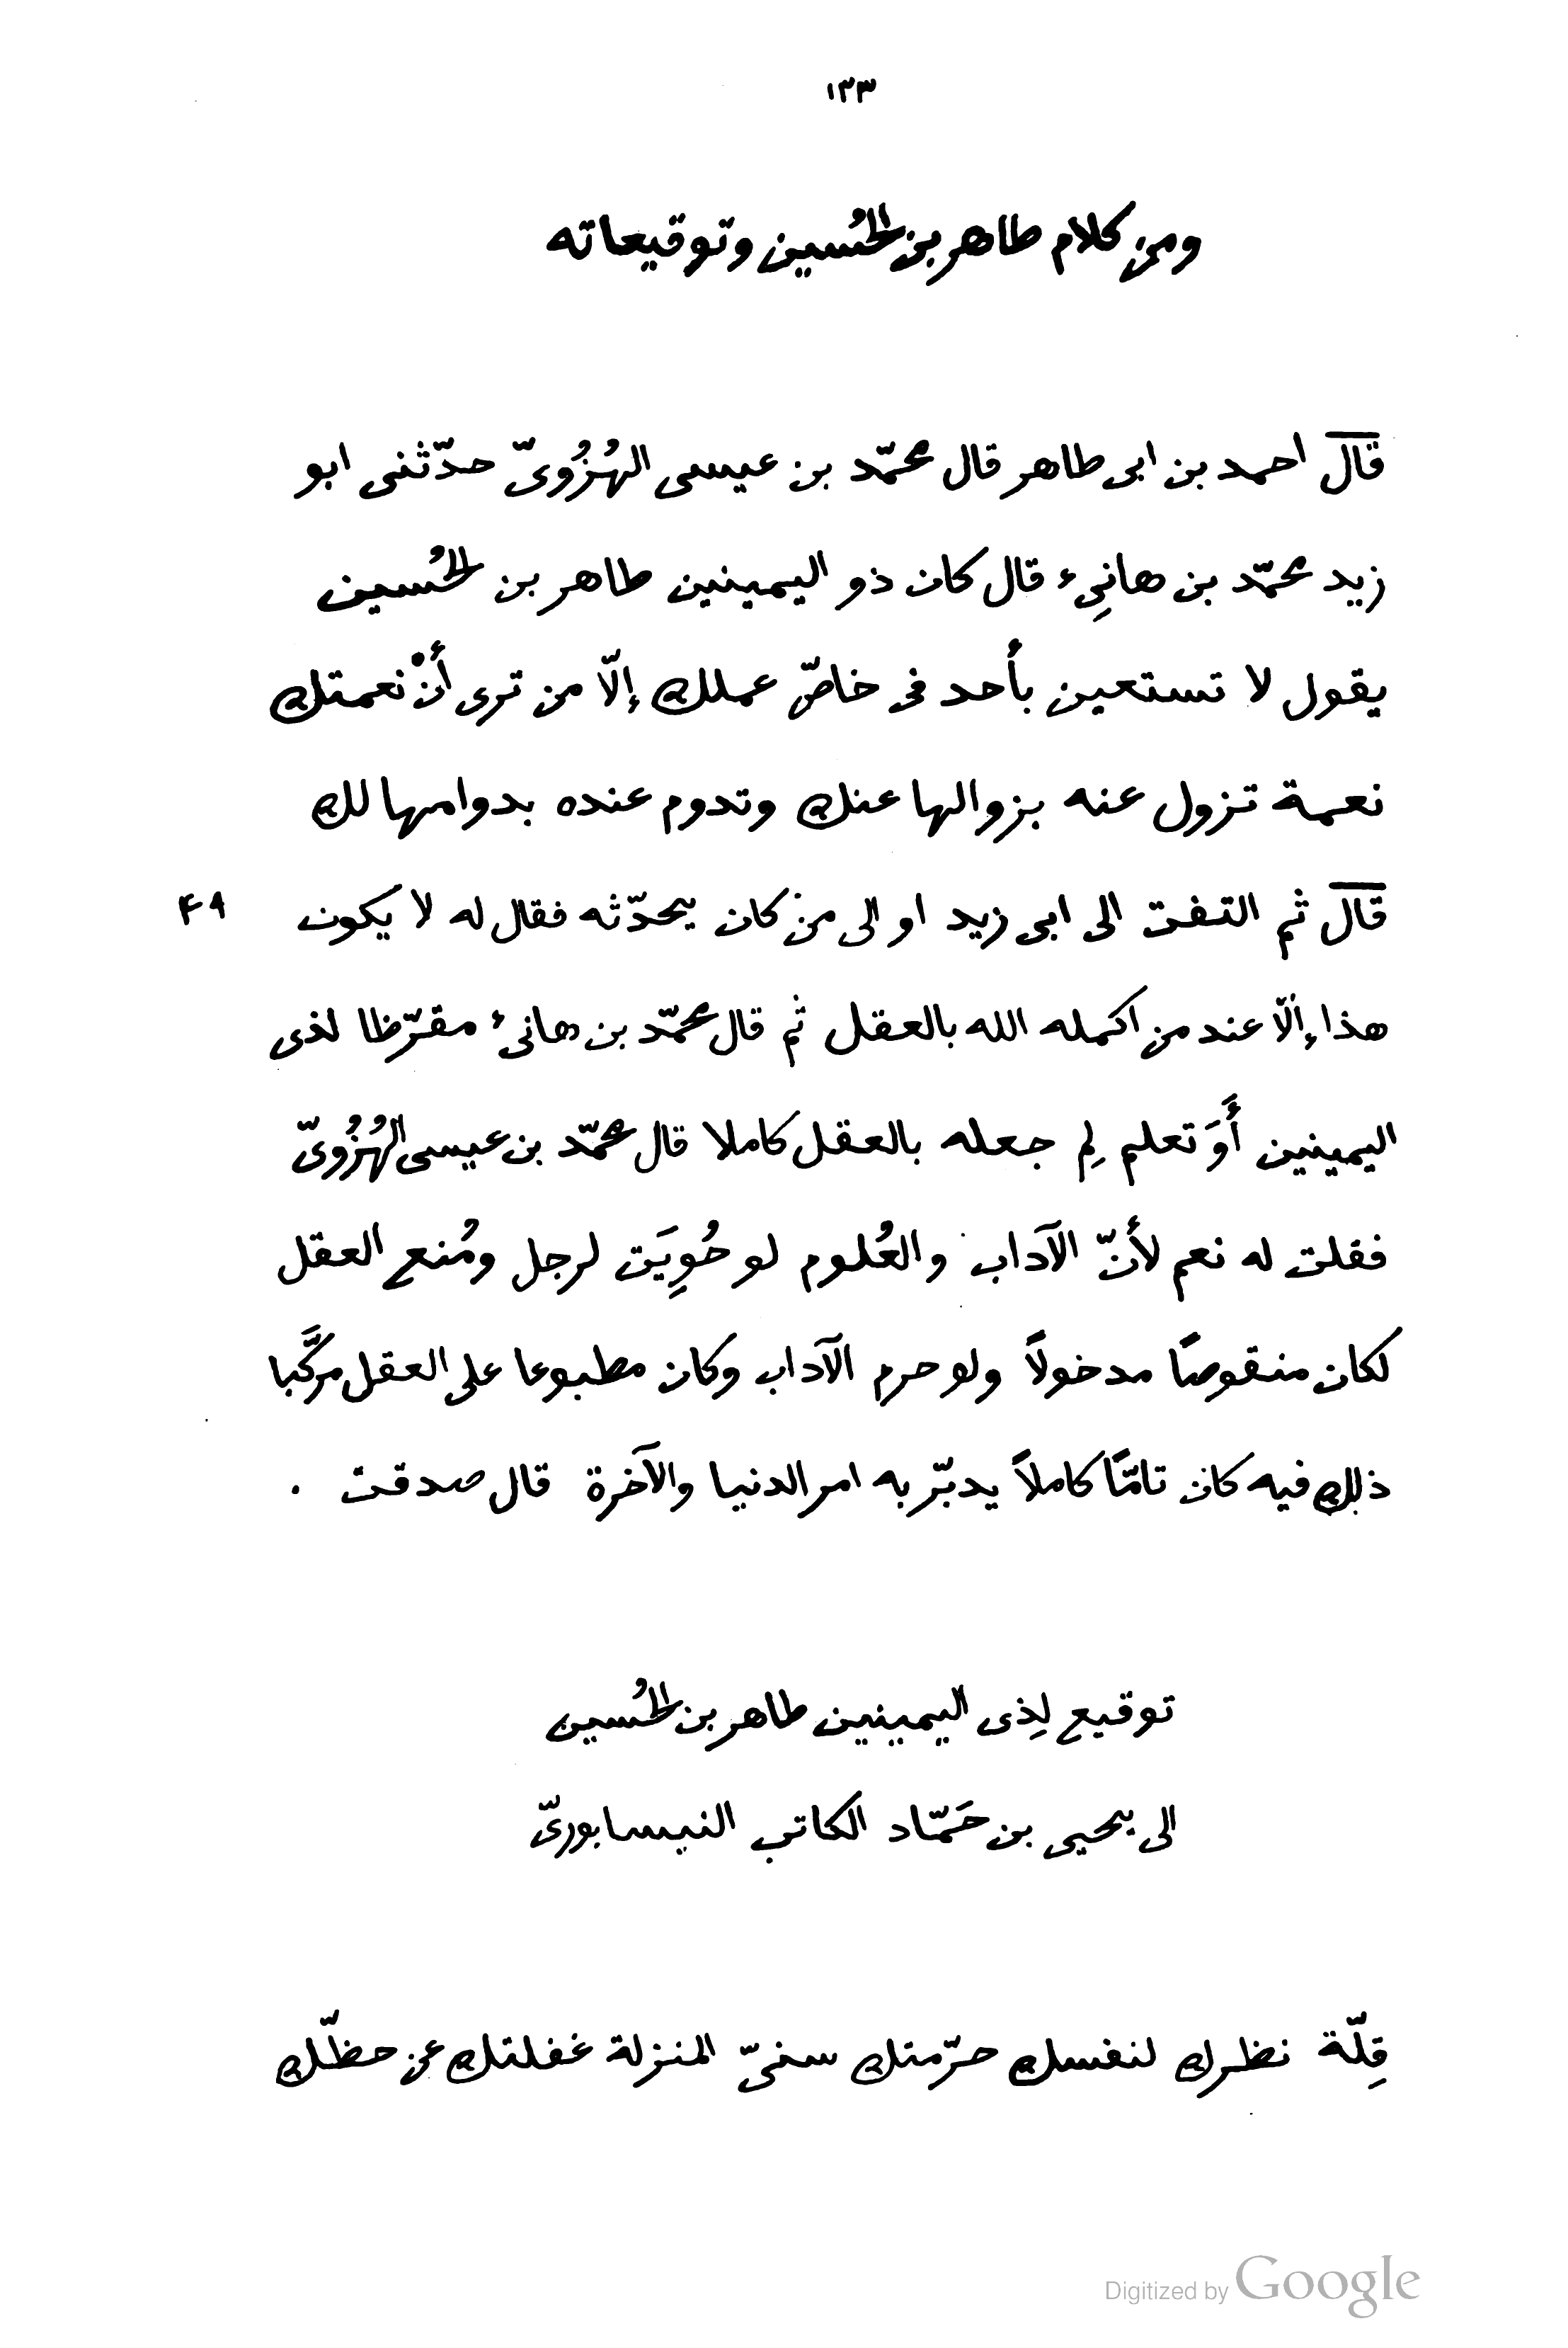 ١٣٣
ومن كلام طاهر بن الحُسين وتوقيعاته
قال احمد بن ابى طاهر قال محمّد بن عيسى الهُزُوىّ حدّثنى ابو
زيد محمّد بن هانِىء قال كان ذو اليمينين طاهر بن الحُسين
يقول لا تستعين بأحد فى خاصّ عملك إلّا من ترى أنْ نعمتك
نعمة تزول عنه بزوالها عنك وتدوم عنده بدوامها لك
قال ثم التفت الى ابى زيد او الى من كان يحدّثه فقال له لا يكون ٤٩
هذا إلّا عند من اكمله الله بالعقل ثم قال محمّد بن هانىء مقرّظا لذى
اليمينين أَوَ تعلم لِم جعله بالعقل كاملا قال محمّد بن عيسى الهُزُوىّ
فقلت له نعم لأنّ الآداب والعُلوم لو حُوِيَت لرجل ومُنع العقل
لكان منقوصًا مدخولاً ولو حرم الآداب وكان مطبوعا على العقل مركَّبا
ذلك فيه كان تامّاً كاملاً يدبّر به امر الدنيا والآخرة قال صدقت .
توقيع لِذى اليمينين طاهر بن الحُسين
الى يحيى بن حَمّاد الكاتب النيسابورىّ
قِلّة نظرك لنفسك حرّمتك سنىّ المنزلة غفلتك عن حظّك
Digitized by Google